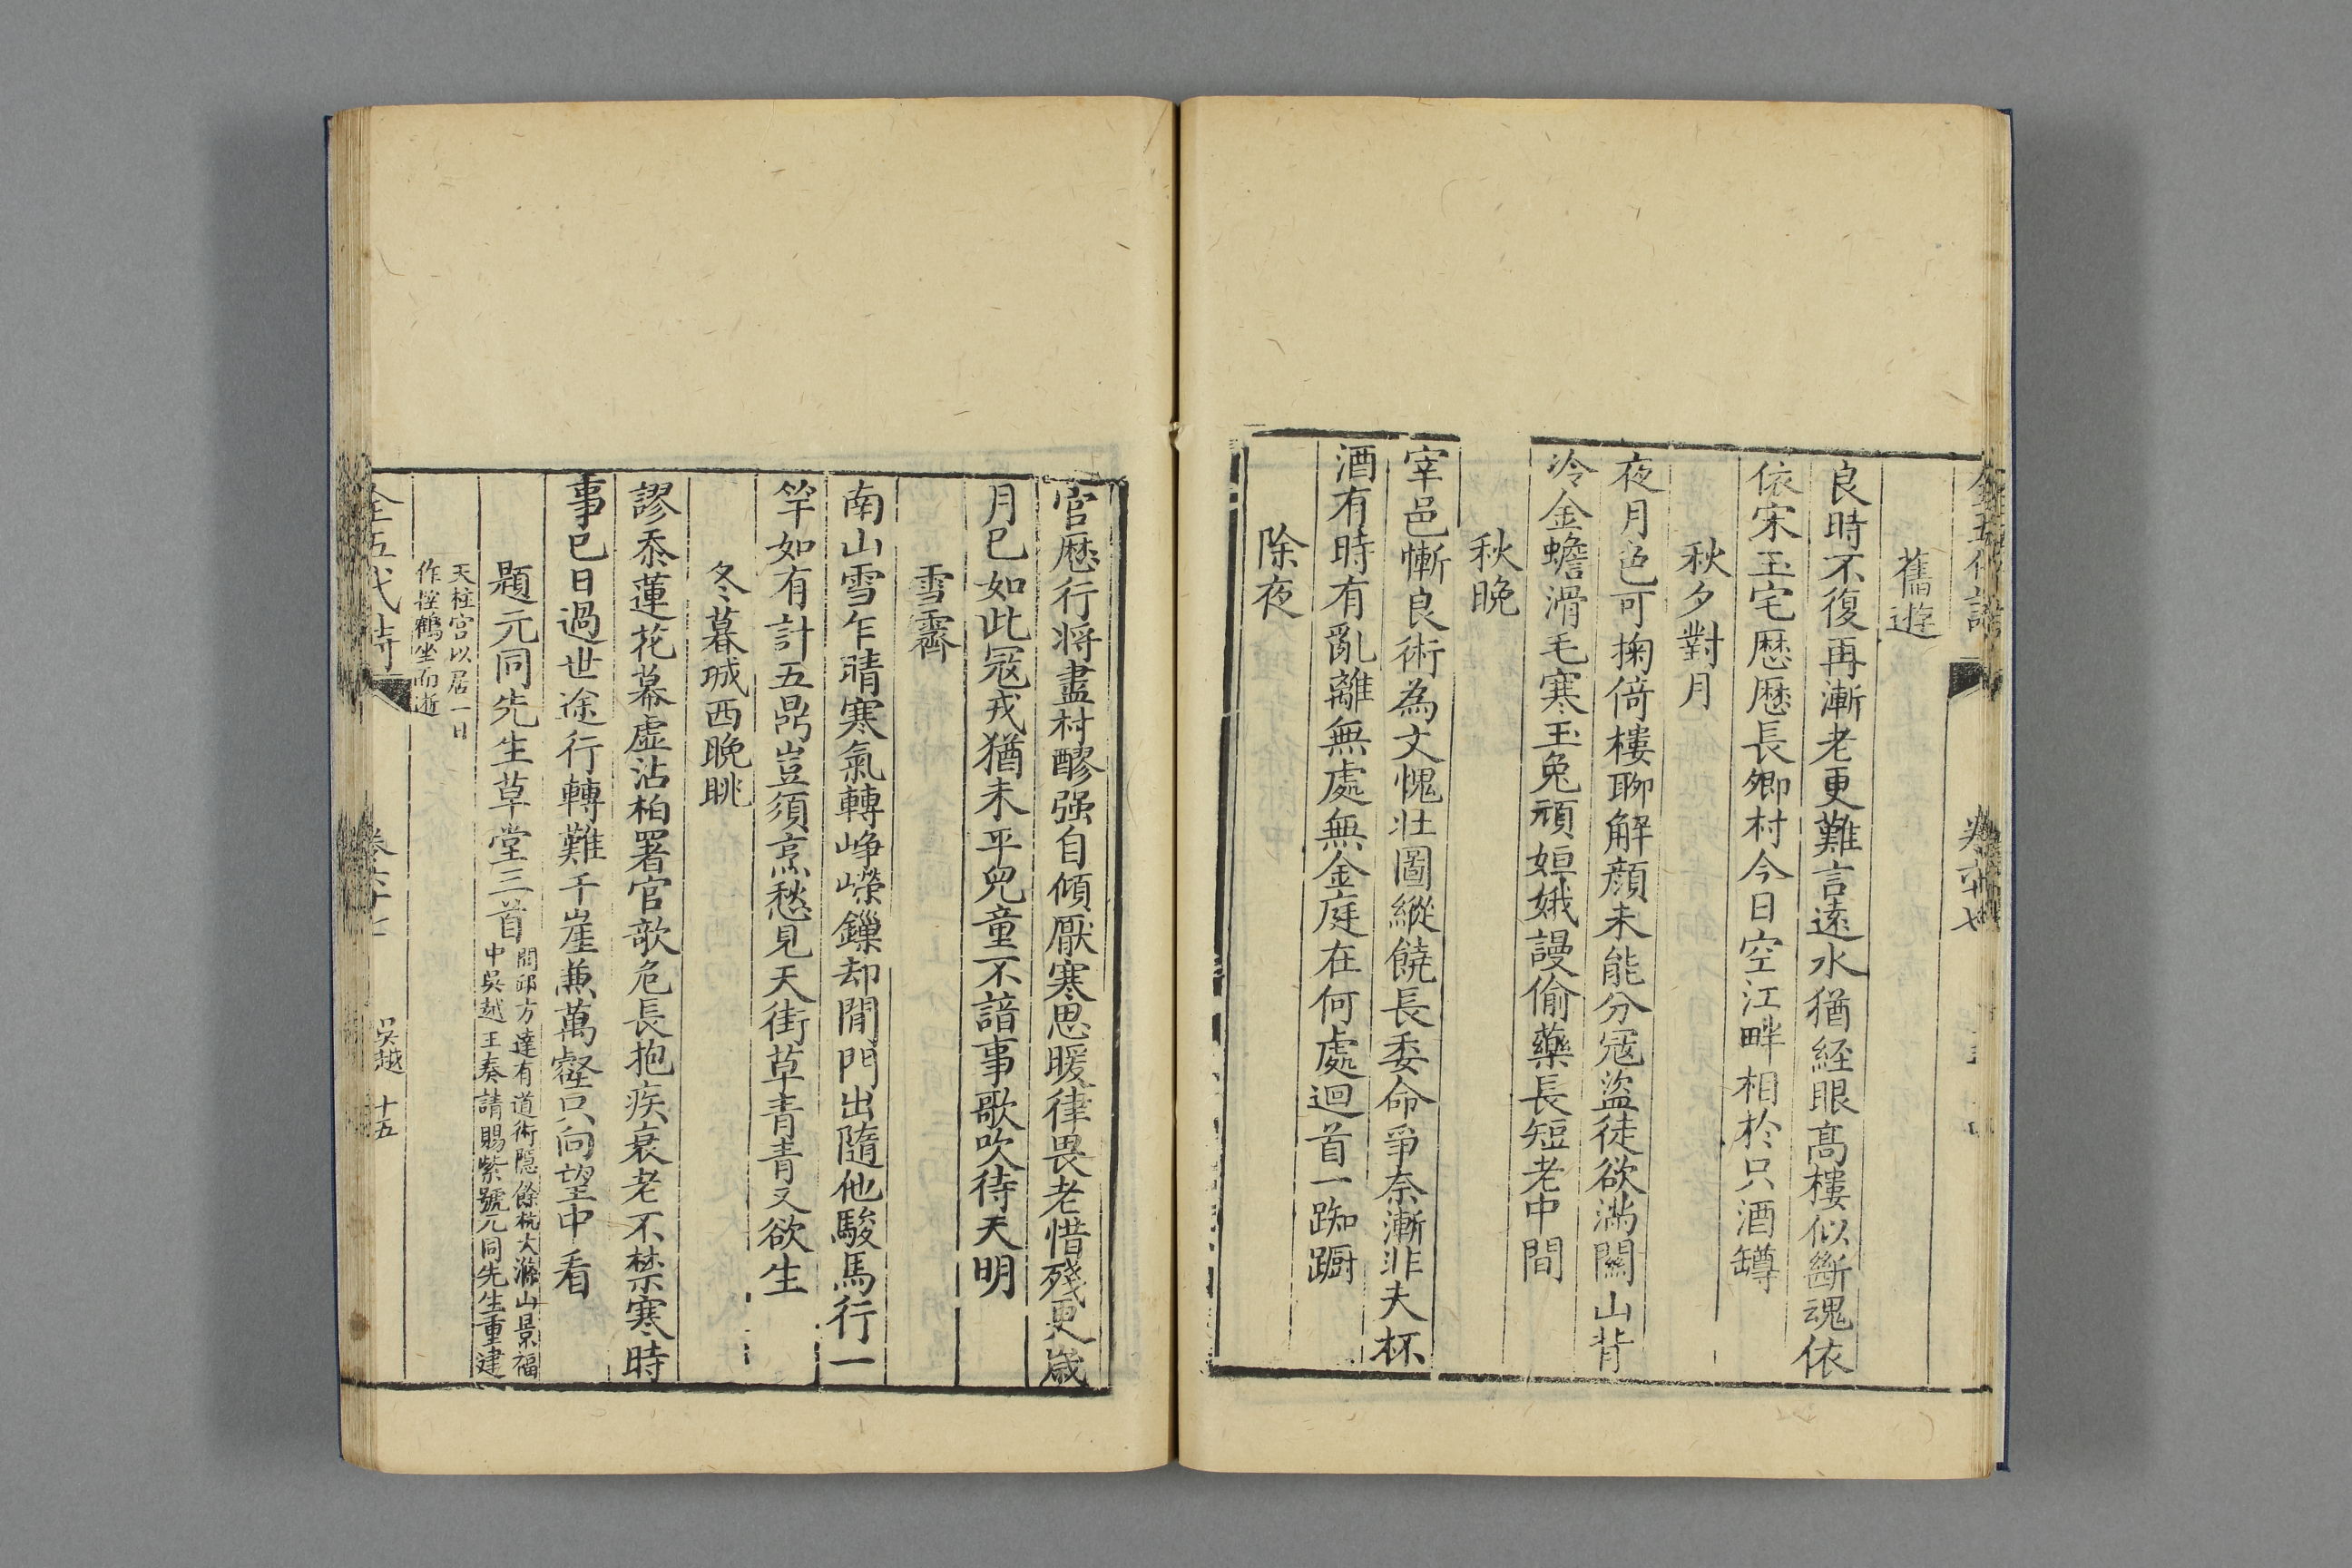 舊遊
良時不復再漸老更難言遠水猶經眼髙樓似斷魂依
依宋玉宅歷歷長卿村今日空江畔相於只酒罇
秋夕對月
夜月色可掬倚樓聊解顔未能分冦盜徒欲滿關山背
冷金蟾滑毛寒玉兔頑姮娥謾偷藥長短老中間
秋晚
宰邑慚良術為文愧壯圖縱饒長委命爭奈漸非夫杯
酒有時有亂離無處無金庭在何處迴首一踟蹰
除夜
官歷行將盡村醪强自傾厭寒思暖律畏老惜殘更歳
月已如此冦戎猶未平兒童不諳事歌吹待天明
雪霽
南山雪乍晴寒氣轉崢嶸鏁却閒門出隨他駿馬行一
竿如有計五鼎豈須烹愁見天街草青青又欲生
冬暮城西晚眺
謬忝蓮花幕虛沾柏署官欹危長抱疾衰老不禁寒時
事已日過世途行轉難千崖兼萬壑只向望中看
題元同先生草堂三首
閭邱方達有道術隱餘杭大滌山景福
中吳越王奏請賜紫號元同先生重建
天柱宫以居一日
作控鶴坐而逝
全五代詩
卷六十七
吳越
十五